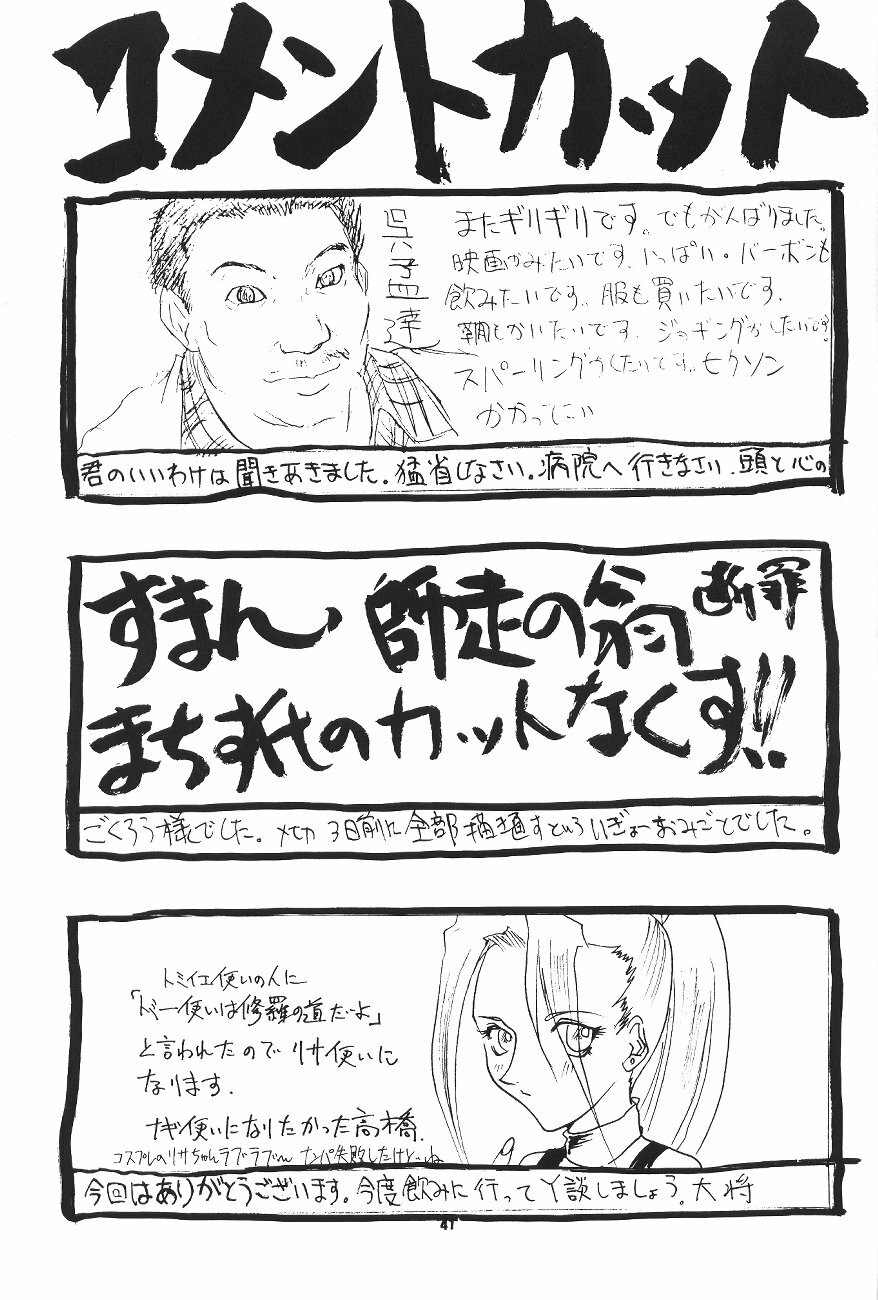 コメントカット
またギリギリです。でもがんばりました。
映画がみたいです、いっぱい。バーボンも
飲みたいです。服も買いたいです。
ジョギングがしたいです。
スパーリングがしたいです。ヒクソン
かかってこい
君のいいわけは聞きあきました。猛省しなさい。病院へ行きなさい、頭と心の
すまん、師走の翁 断罪
まち針のカットなくす!!
ごくろう様でした。〆切3日前に全部描き直すといういぎょーおみごとでした。
トミイエ使いの人に
「ドベー使いは修羅の道だよ」
と言われたのでリサ使いに
なります。
ナギ使いになりたかった高橋.
コスプレのリサちゃんラブラブ〜ん ナンパ失敗したけど…ね
今回はありがとうございます。今度飲みに行ってY談しましょう。大将
41